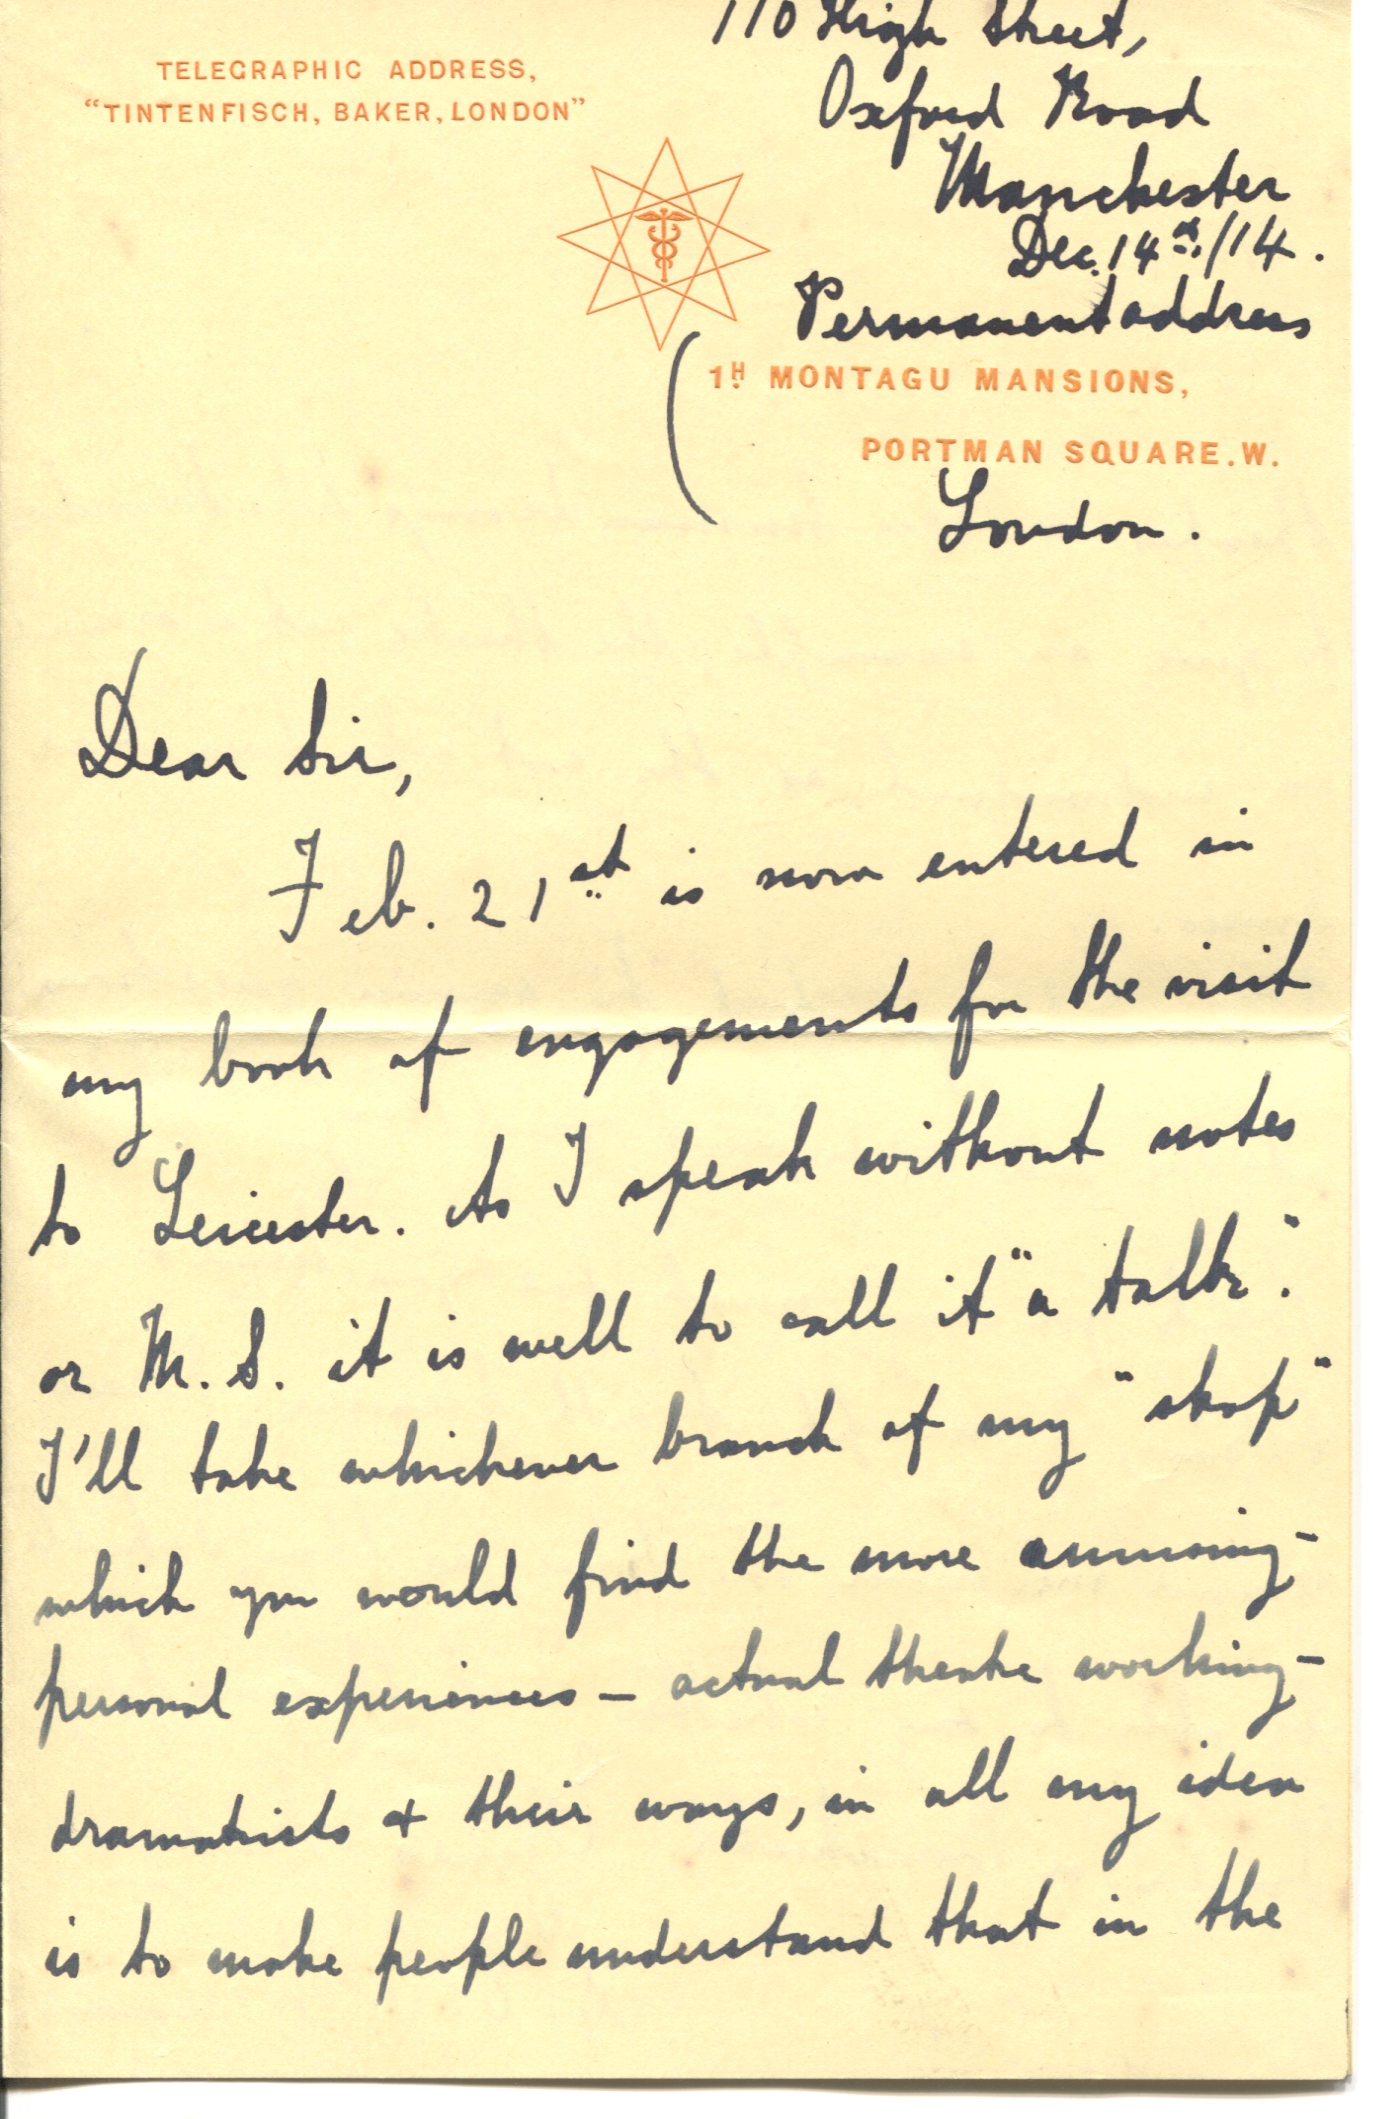 110 High Street,
TELEGRAPHIC ADDRESS,
"TINTENFISCH, BAKER, LONDON"
Oxford Road
Manchester
Dec. 14th/14.
Permanent address
1H MONTAGU MANSIONS,
PORTMAN SQUARE. W.
London.
Dear Sir,
Feb. 21st is now entered in
my book of engagements for the visit
to Leicester. As I speak without notes
or M.S. it is well to call it "a talk".
I'll take whichever branch of my "shop"
which you would find the more amusing -
personal experiences - actual theatre working -
dramatists + their ways, in all my idea
is to make people understand that in the